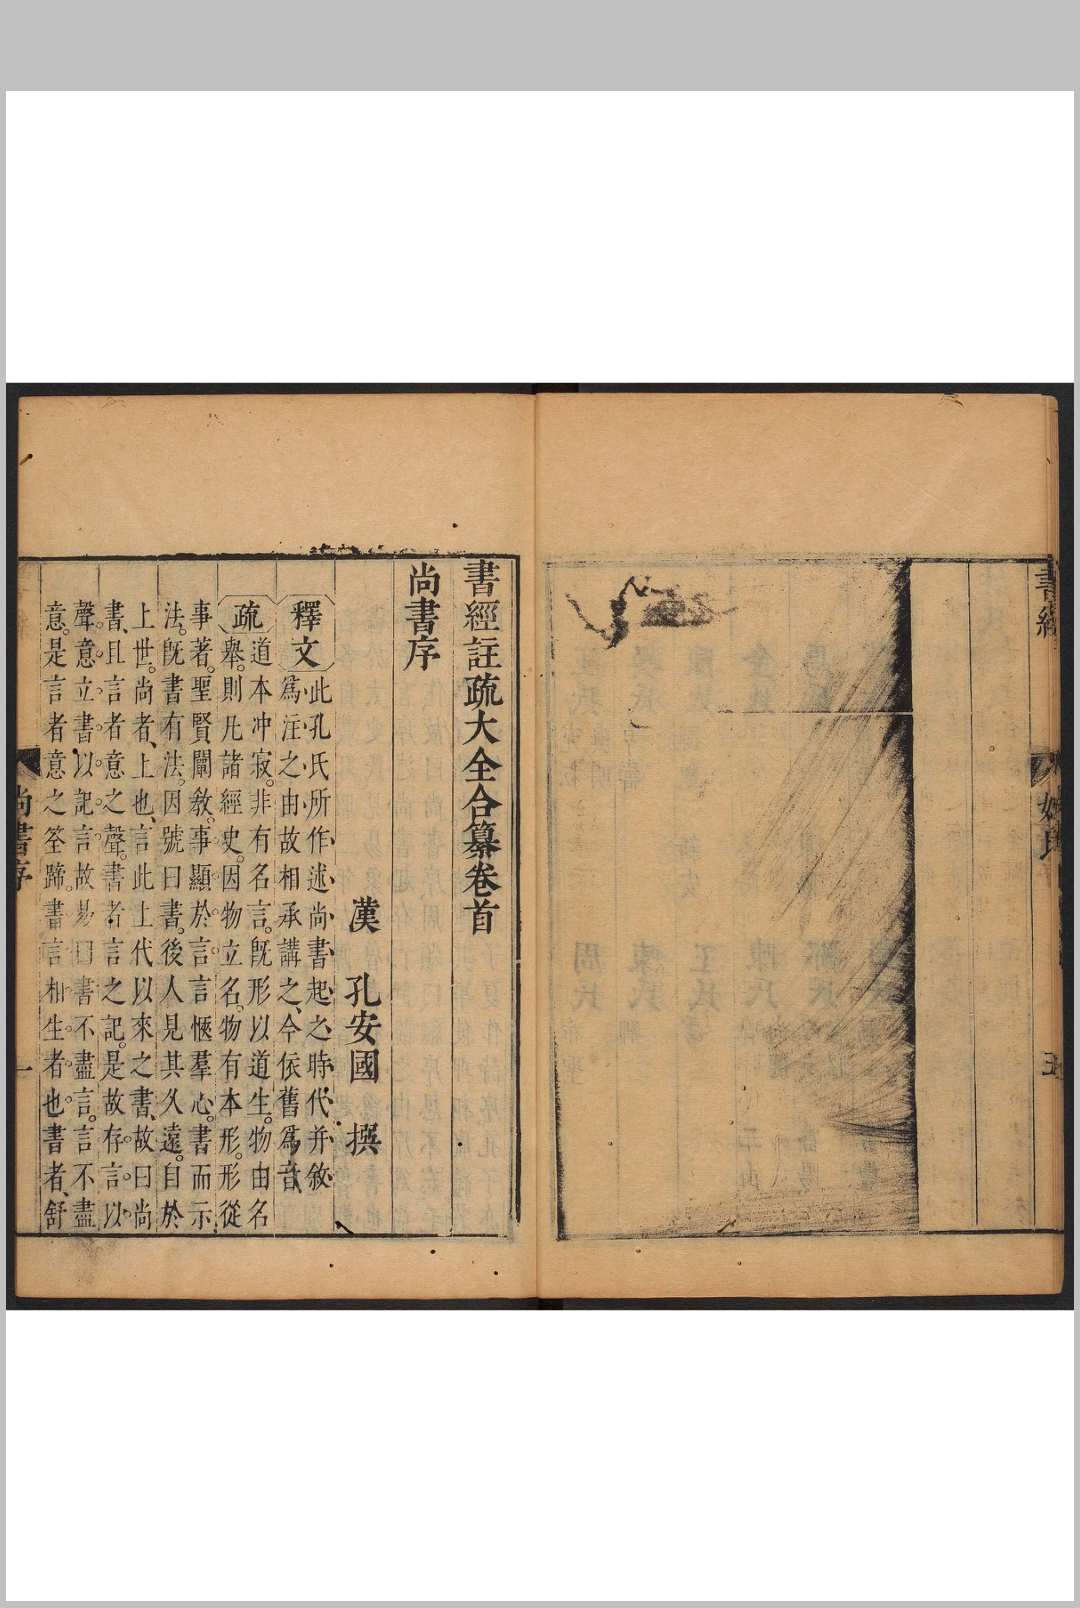 書經
姓氏
五
書經註疏大全合纂卷首
尚書序
漢 孔安國 撰
釋文 此孔氏所作述尚書起之時代并敘
爲注之由故相承講之今依舊爲音
疏 道本冲寂。非有名言。旣形以道生。物由名
舉。則凡諸經史。因物立名。物有本形。形從
事著。聖賢闡敎。事顯於言。言愜羣心。書而示
法。旣書有法。因號曰書。後人見其久遠。自於
上世。尚者、上也、言此上代以來之書、故曰尚
書、且言者意之聲。書者言之記。是故存言以
聲意。立書以記言。故易曰書不盡言。言不盡
意。是言者意之筌蹄。書言相生者也。書者、舒
尚書序
一